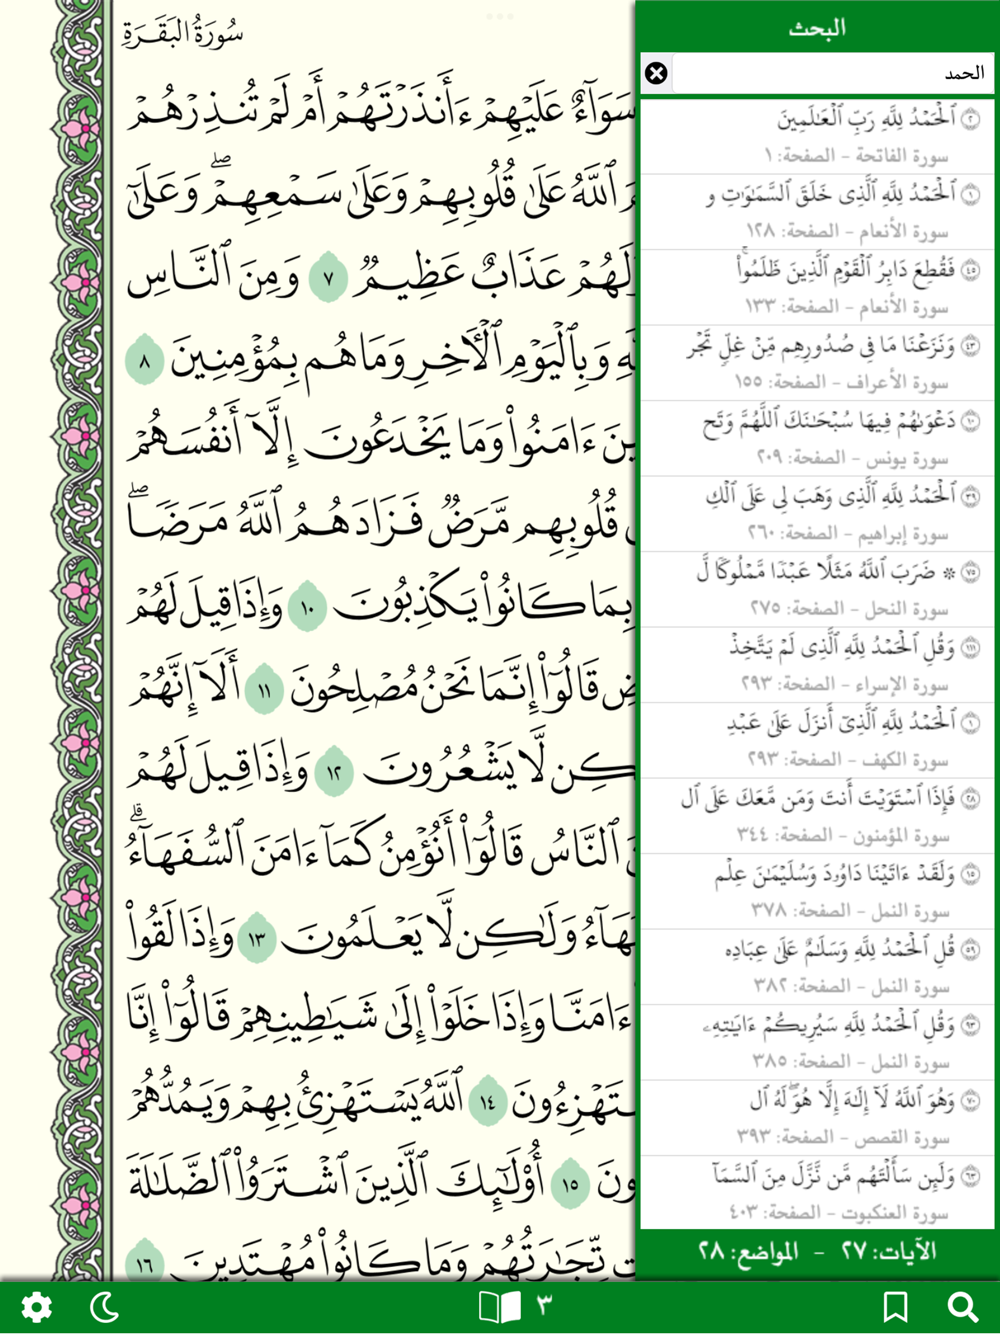 البحث
الحمد
٢ ٱلْحَمْدُ لِلَّهِ رَبِّ ٱلْعَٰلَمِينَ
سورة الفاتحة - الصفحة: ١
١ ٱلْحَمْدُ لِلَّهِ ٱلَّذِى خَلَقَ ٱلسَّمَٰوَٰتِ و
سورة الأنعام - الصفحة: ١٢٨
٤٥ فَقُطِعَ دَابِرُ ٱلْقَوْمِ ٱلَّذِينَ ظَلَمُوا۟ۚ
سورة الأنعام - الصفحة: ١٣٣
٤٣ وَنَزَعْنَا مَا فِى صُدُورِهِم مِّنْ غِلٍّۢ تَجْر
سورة الأعراف - الصفحة: ١٥٥
١٠ دَعْوَىٰهُمْ فِيهَا سُبْحَٰنَكَ ٱللَّهُمَّ وَتَح
سورة يونس - الصفحة: ٢٠٩
٣٩ ٱلْحَمْدُ لِلَّهِ ٱلَّذِى وَهَبَ لِى عَلَى ٱلْكِ
سورة إبراهيم - الصفحة: ٢٦٠
٧٥ ۞ ضَرَبَ ٱللَّهُ مَثَلًا عَبْدًۭا مَّمْلُوكًۭا لَّ
سورة النحل - الصفحة: ٢٧٥
١١١ وَقُلِ ٱلْحَمْدُ لِلَّهِ ٱلَّذِى لَمْ يَتَّخِذْ
سورة الإسراء - الصفحة: ٢٩٣
١ ٱلْحَمْدُ لِلَّهِ ٱلَّذِىٓ أَنزَلَ عَلَىٰ عَبْدِ
سورة الكهف - الصفحة: ٢٩٣
٢٨ فَإِذَا ٱسْتَوَيْتَ أَنتَ وَمَن مَّعَكَ عَلَى ٱل
سورة المؤمنون - الصفحة: ٣٤٤
١٥ وَلَقَدْ ءَاتَيْنَا دَاوُۥدَ وَسُلَيْمَٰنَ عِلْم
سورة النمل - الصفحة: ٣٧٨
٥٩ قُلِ ٱلْحَمْدُ لِلَّهِ وَسَلَٰمٌ عَلَىٰ عِبَادِه
سورة النمل - الصفحة: ٣٨٢
٩٣ وَقُلِ ٱلْحَمْدُ لِلَّهِ سَيُرِيكُمْ ءَايَٰتِهِۦ
سورة النمل - الصفحة: ٣٨٥
٧٠ وَهُوَ ٱللَّهُ لَآ إِلَٰهَ إِلَّا هُوَ ۖ لَهُ ٱل
سورة القصص - الصفحة: ٣٩٣
٦٣ وَلَئِن سَأَلْتَهُم مَّن نَّزَّلَ مِنَ ٱلسَّمَآ
سورة العنكبوت - الصفحة: ٤٠٣
الآيات: ٢٧ - المواضع: ٢٨
سُورَةُ البَقَرَةِ
سَوَآءٌ عَلَيْهِمْ ءَأَنذَرْتَهُمْ أَمْ لَمْ تُنذِرْهُمْ
ٱللَّهُ عَلَىٰ قُلُوبِهِمْ وَعَلَىٰ سَمْعِهِمْ ۖ وَعَلَىٰٓ
لَهُمْ عَذَابٌ عَظِيمٌ ٧ وَمِنَ ٱلنَّاسِ
وَبِٱلْيَوْمِ ٱلْأَخِرِ وَمَا هُم بِمُؤْمِنِينَ ٨
ءَامَنُوا۟ وَمَا يَخْدَعُونَ إِلَّآ أَنفُسَهُمْ
قُلُوبِهِم مَّرَضٌ فَزَادَهُمُ ٱللَّهُ مَرَضًا ۖ
بِمَا كَانُوا۟ يَكْذِبُونَ ١٠ وَإِذَا قِيلَ لَهُمْ
قَالُوٓا۟ إِنَّمَا نَحْنُ مُصْلِحُونَ ١١ أَلَآ إِنَّهُمْ
كِن لَّا يَشْعُرُونَ ١٢ وَإِذَا قِيلَ لَهُمْ
ٱلنَّاسُ قَالُوٓا۟ أَنُؤْمِنُ كَمَآ ءَامَنَ ٱلسُّفَهَآءُ ۗ
هَآءُ وَلَٰكِن لَّا يَعْلَمُونَ ١٣ وَإِذَا لَقُوا۟
ءَامَنَّا وَإِذَا خَلَوْا۟ إِلَىٰ شَيَٰطِينِهِمْ قَالُوٓا۟ إِنَّا
تَهْزِءُونَ ١٤ ٱللَّهُ يَسْتَهْزِئُ بِهِمْ وَيَمُدُّهُمْ
ونَ ١٥ أُو۟لَٰٓئِكَ ٱلَّذِينَ ٱشْتَرَوُا۟ ٱلضَّلَٰلَةَ
ت تِّجَٰرَتُهُمْ وَمَا كَانُوا۟ مُهْتَدِينَ ١٦
٣